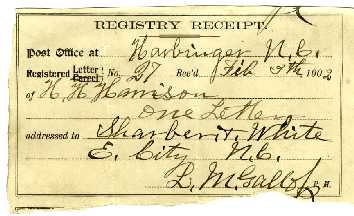 REGISTRY RECEIPT.
Post Office at Harbinger N.C.
Registered Letter Parcel No. 27 Rec'd Feb 7th 1902
of H. H. Harrison
One Letter
addressed to Sharber & White
E. City N.C.
P. M.